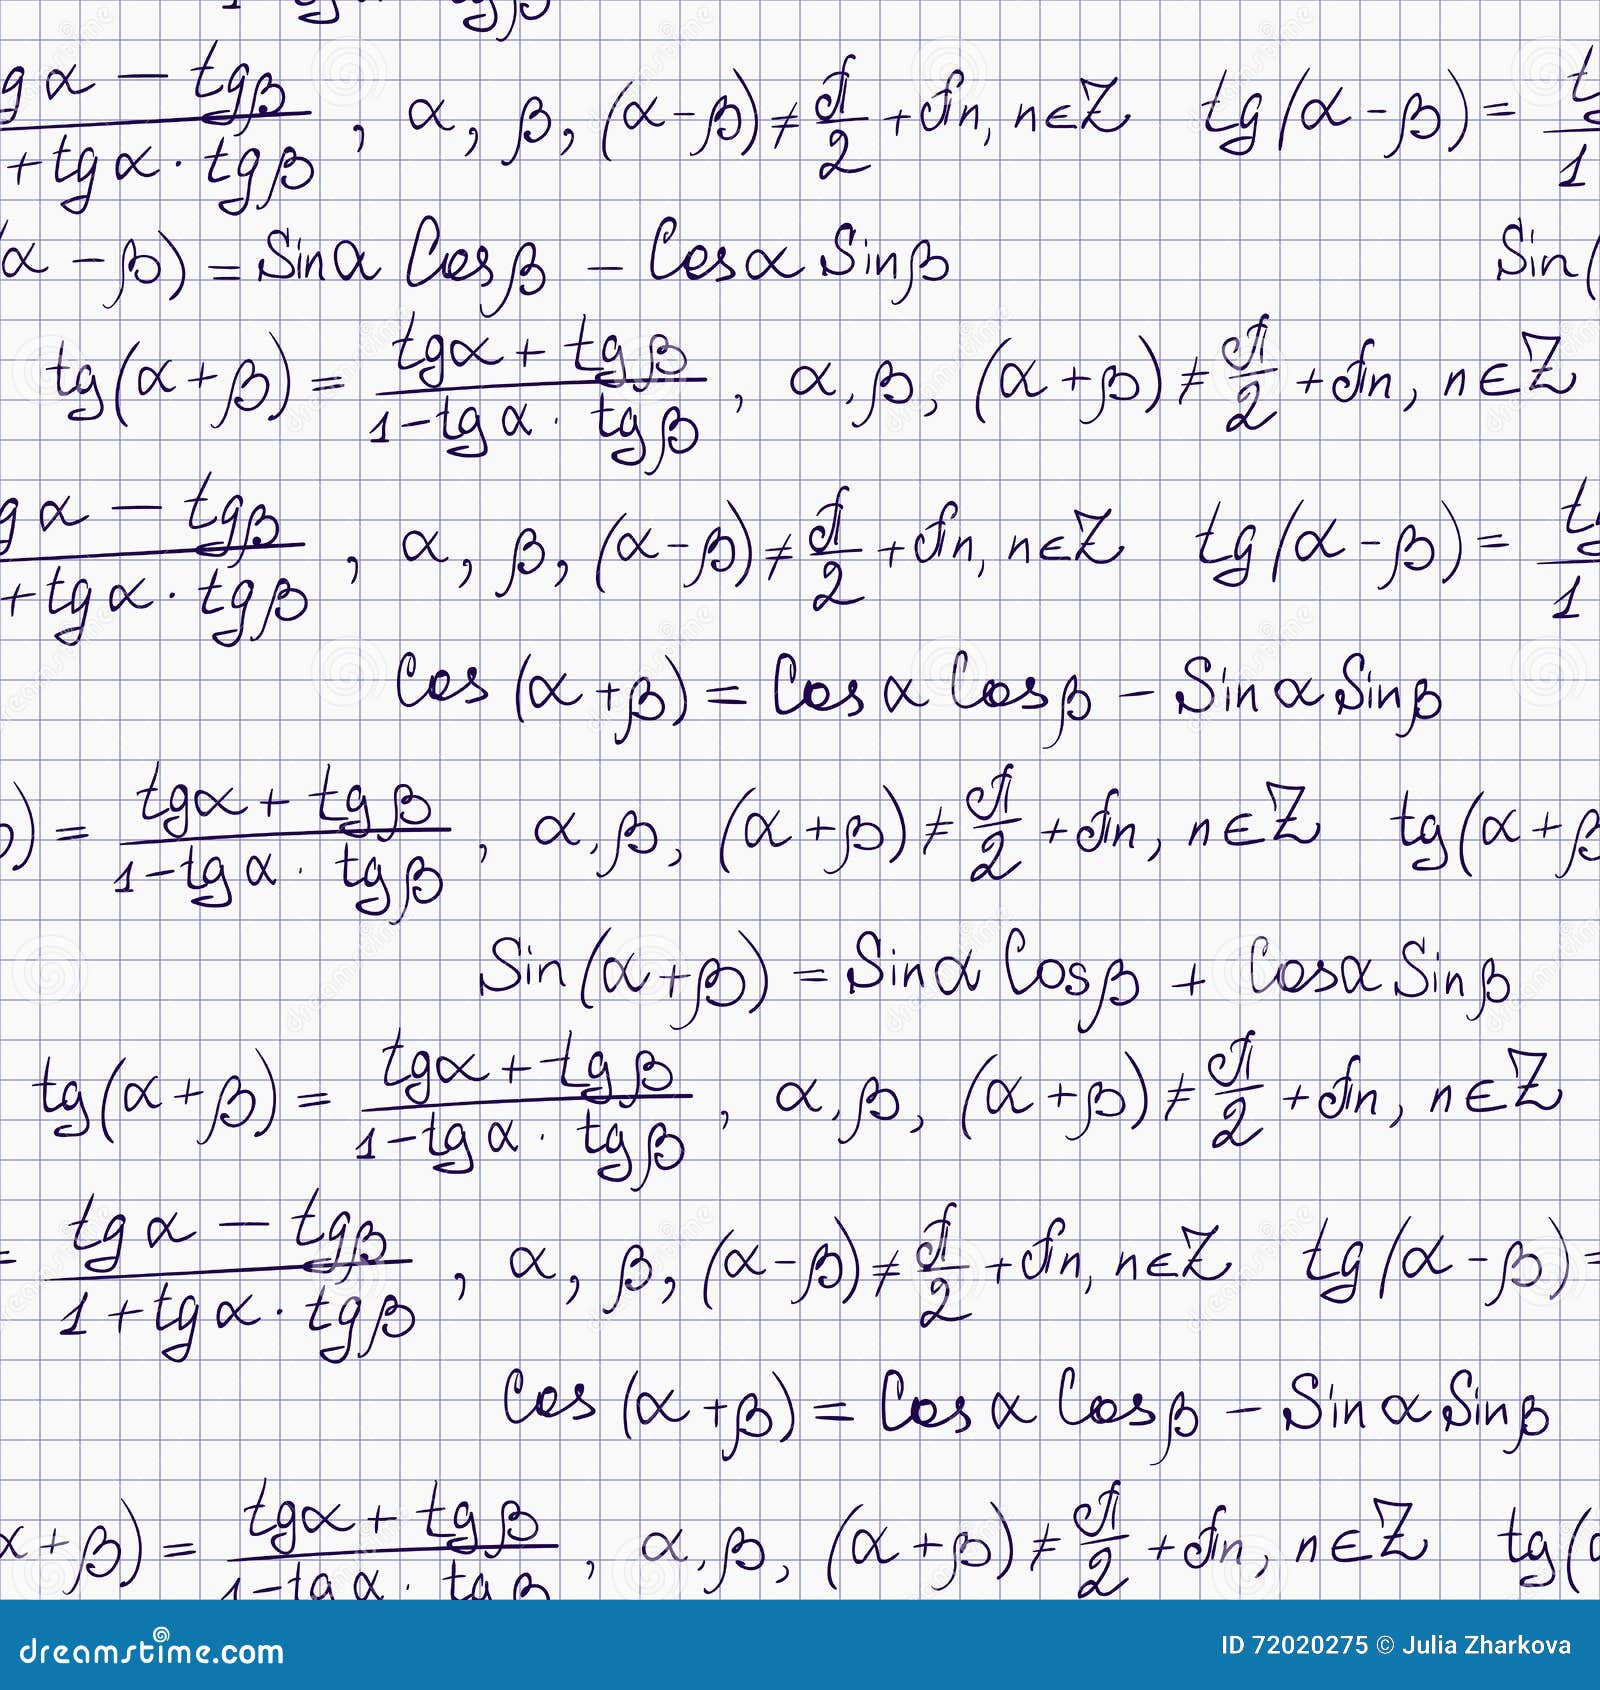 gα − tgβ / +tgα · tgβ , α, β, (α-β) ≠ π/2 + πn, n∈Z tg(α-β) = t / 1
α - β) = Sinα Cosβ - Cosα Sinβ Sin(
tg(α+β) = tgα + tgβ / 1-tgα · tgβ , α, β, (α+β) ≠ π/2 + πn, n∈Z
gα − tgβ / +tgα · tgβ , α, β, (α-β) ≠ π/2 + πn, n∈Z tg(α-β) = t / 1
Cos (α+β) = Cosα Cosβ - Sinα Sinβ
) = tgα + tgβ / 1-tgα · tgβ , α, β, (α+β) ≠ π/2 + πn, n∈Z tg(α+β
Sin(α+β) = Sinα Cosβ + Cosα Sinβ
tg(α+β) = tgα + tgβ / 1-tgα · tgβ , α, β, (α+β) ≠ π/2 + πn, n∈Z
= tgα − tgβ / 1+tgα · tgβ , α, β, (α-β) ≠ π/2 + πn, n∈Z tg(α-β) =
Cos (α+β) = Cosα Cosβ - Sinα Sinβ
α+β) = tgα + tgβ / 1-tgα · tgβ , α, β, (α+β) ≠ π/2 + πn, n∈Z tg(α
dreamstime.com ID 72020275 © Julia Zharkova